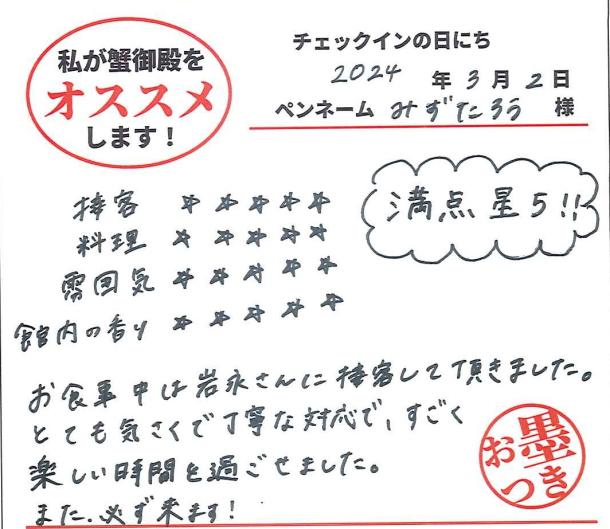 私が蟹御殿を
オススメ
します！
チェックインの日にち
2024 年 3 月 2 日
ペンネーム みずたろう 様
接客 ☆☆☆☆☆
料理 ☆☆☆☆☆
雰囲気 ☆☆☆☆☆
館内の香り ☆☆☆☆☆
満点星5!!
お食事中は岩永さんに接客して頂きました。
とても気さくで丁寧な対応で、すごく
楽しい時間を過ごせました。
また、必ず来ます!
お墨
つき